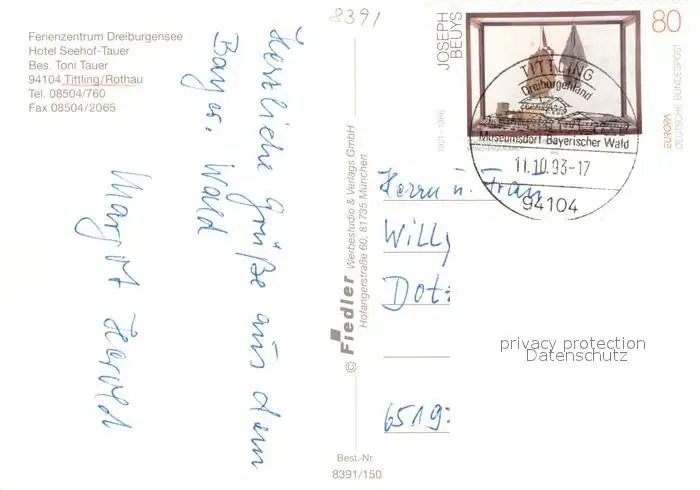 Ferienzentrum Dreiburgensee
Hotel Seehof-Tauer
Bes. Toni Tauer
94104 Tittling/Rothau
Tel. 08504/760
Fax 08504/2065
8391
Herzliche Grüße aus dem
Bayer. Wald
Margot Herold
© Fiedler Werbestudio & Verlags GmbH
Hofangerstraße 60, 81735 München
Best.-Nr.
8391/150
JOSEPH
BEUYS
1921-1986
80
EUROPA
DEUTSCHE BUNDESPOST
TITTLING
Dreiburgenland
Museumsdorf Bayerischer Wald
11.10.93-17
94104
Herrn u. Frau
Willy
Dot
6519
privacy protection
Datenschutz